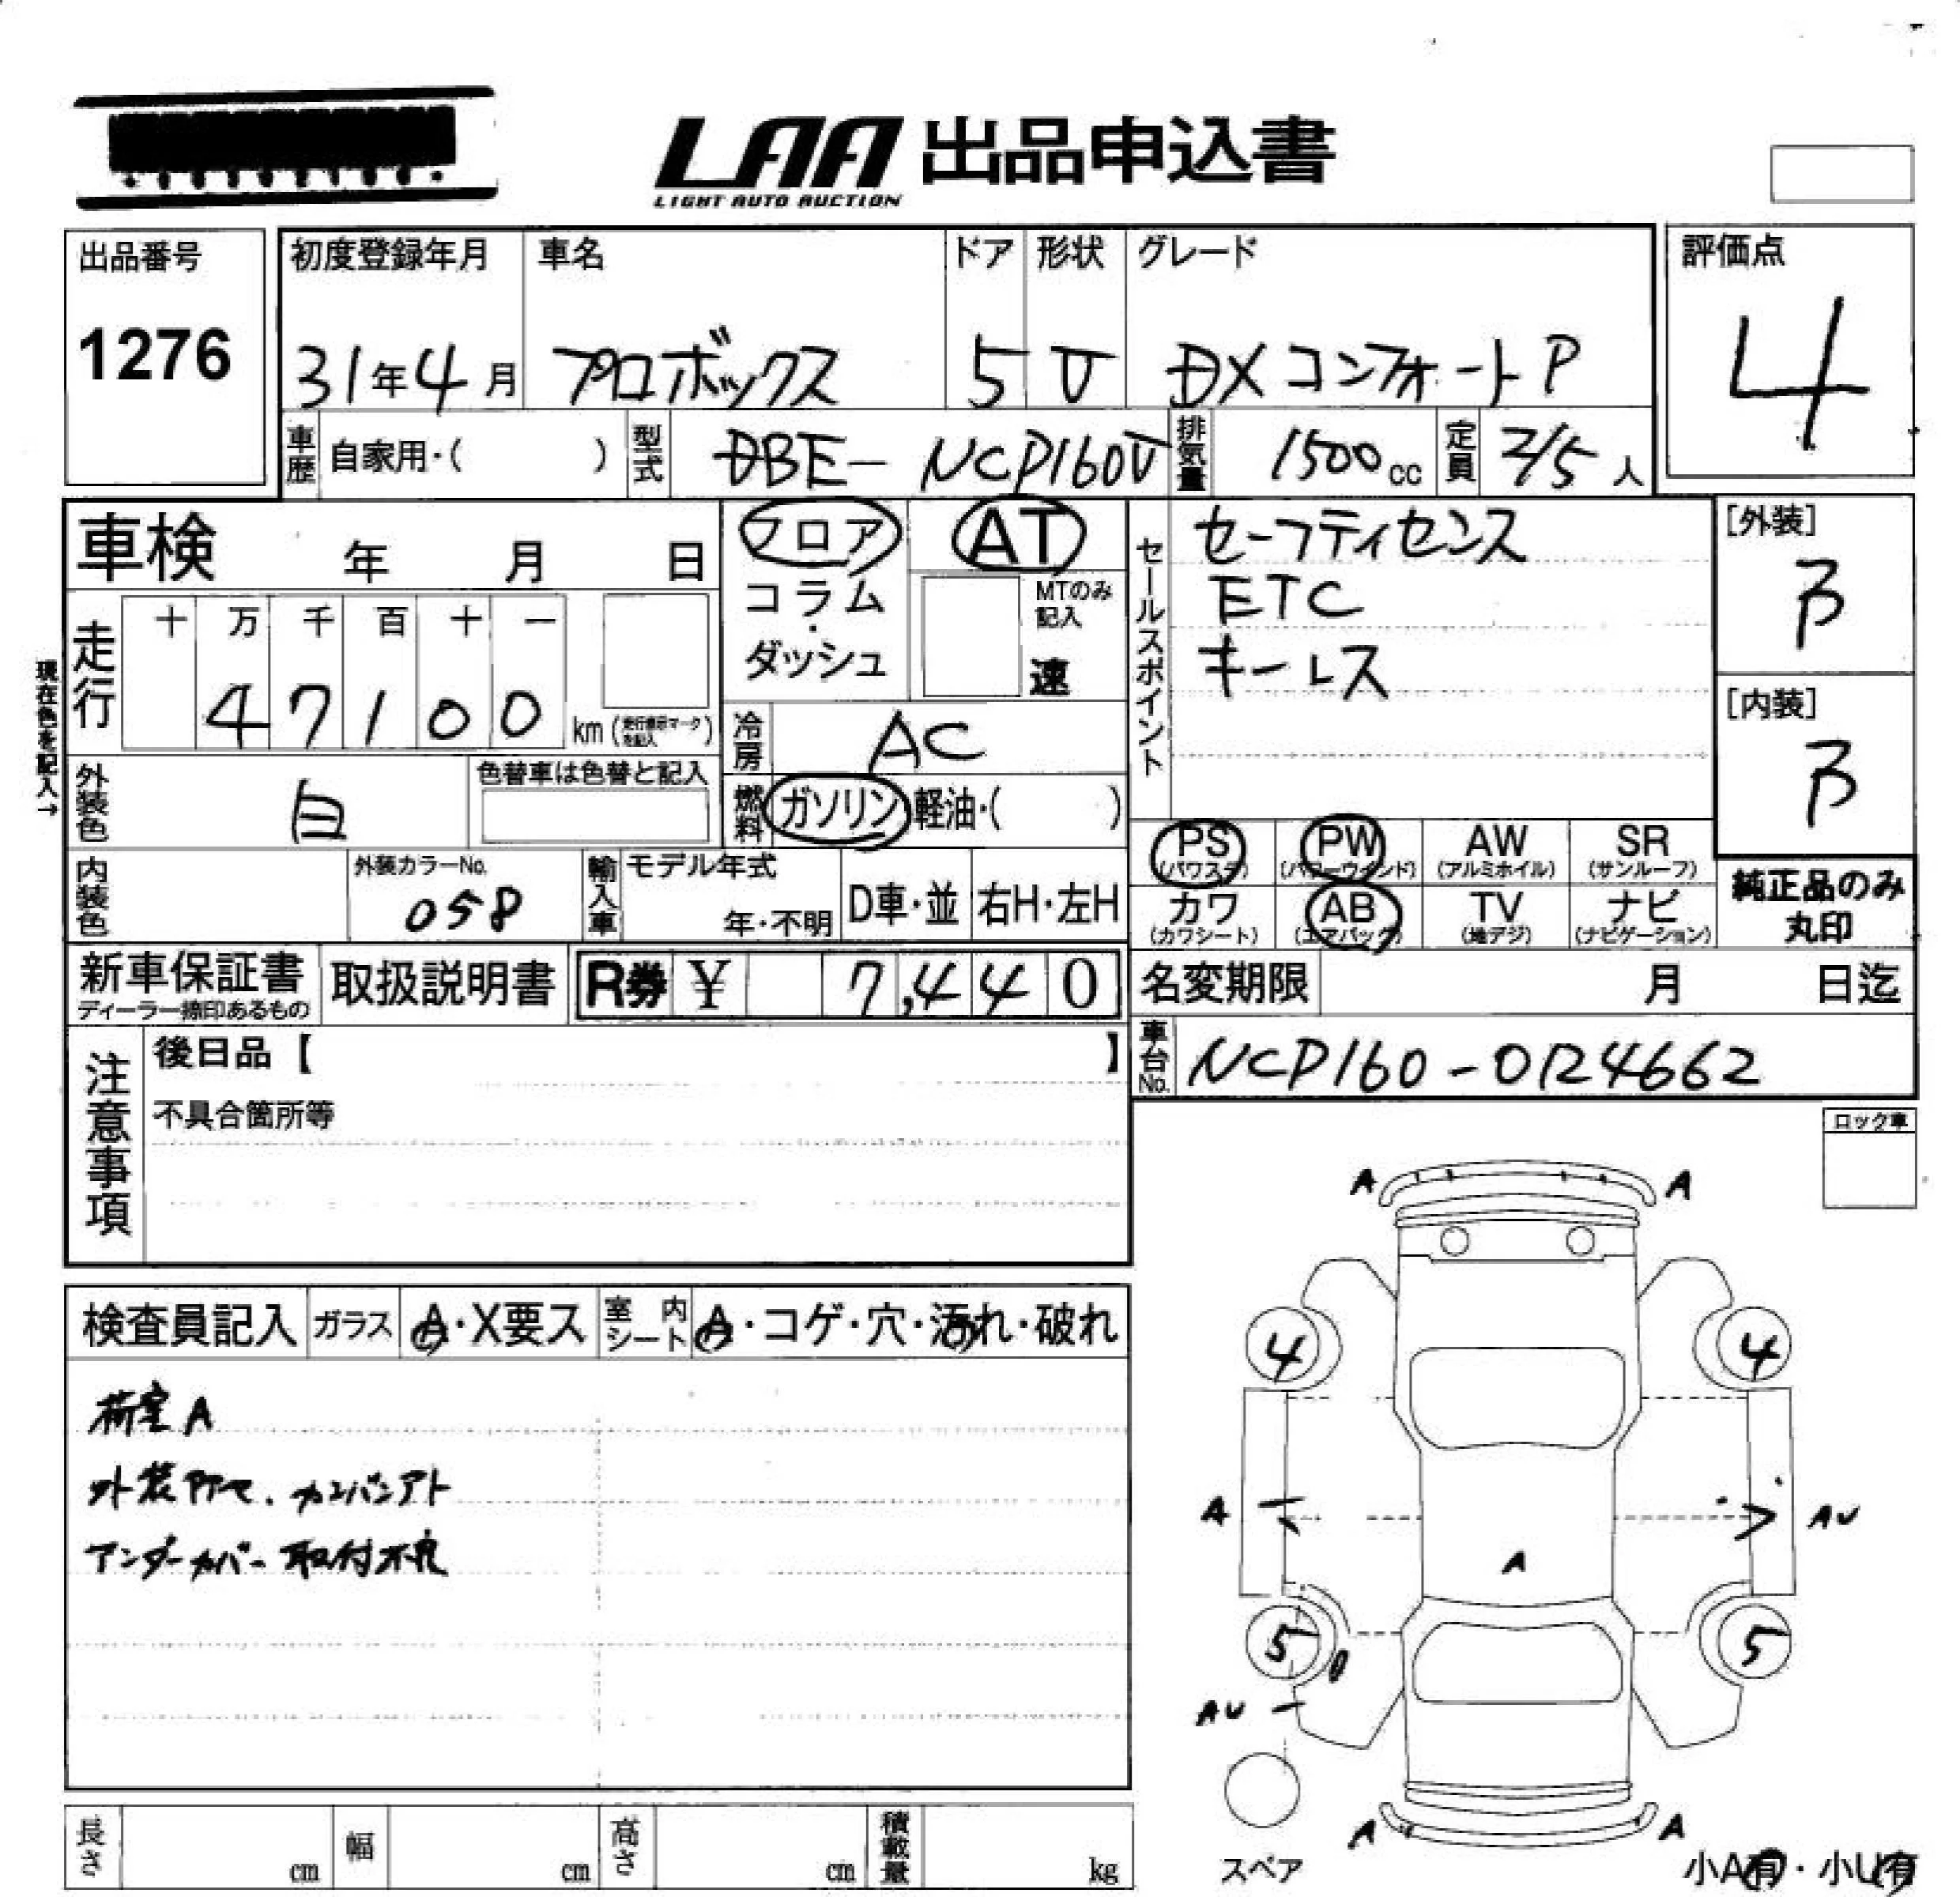 LAA 出品申込書
LIGHT AUTO AUCTION
出品番号
1276
初度登録年月 車名 ドア 形状 グレード
31年4月 プロボックス 5 V DXコンフォートP
評価点
4
車歴 自家用・( ) 型式 DBE- NCP160V 排気量 1500cc 定員 2/5人
車検 年 月 日
フロア
コラム
・
ダッシュ
AT
MTのみ
記入
速
セールスポイント
セーフティセンス
ETC
キーレス
[外装]
B
[内装]
B
現在色を記入→
走行 十 万 千 百 十 一
4 7 1 0 0 km (走行表示マークを記入)
冷房 AC
外装色 白 色替車は色替と記入
燃料 ガソリン・軽油・( )
PS (パワステ) PW (パワーウインド) AW (アルミホイル) SR (サンルーフ)
カワ (カワシート) AB (エアバッグ) TV (地デジ) ナビ (ナビゲーション)
純正品のみ
丸印
内装色 外装カラーNo. 058
輸入車 モデル年式 年・不明 D車・並 右H・左H
新車保証書 ディーラー捺印あるもの 取扱説明書 R券 ¥ 7,440
名変期限 月 日迄
車台No. NCP160-0124662
注意事項
後日品【 】
不具合箇所等
ロック車
検査員記入 ガラス A・X要ス 室内シート A・コゲ・穴・汚れ・破れ
荷室A
外装所々、カンバンアト
アンダーカバー取付不良
A A
4 4
A AU
A
5 5
AU
A A
スペア
小A有・小U有
長さ cm 幅 cm 高さ cm 積載量 kg